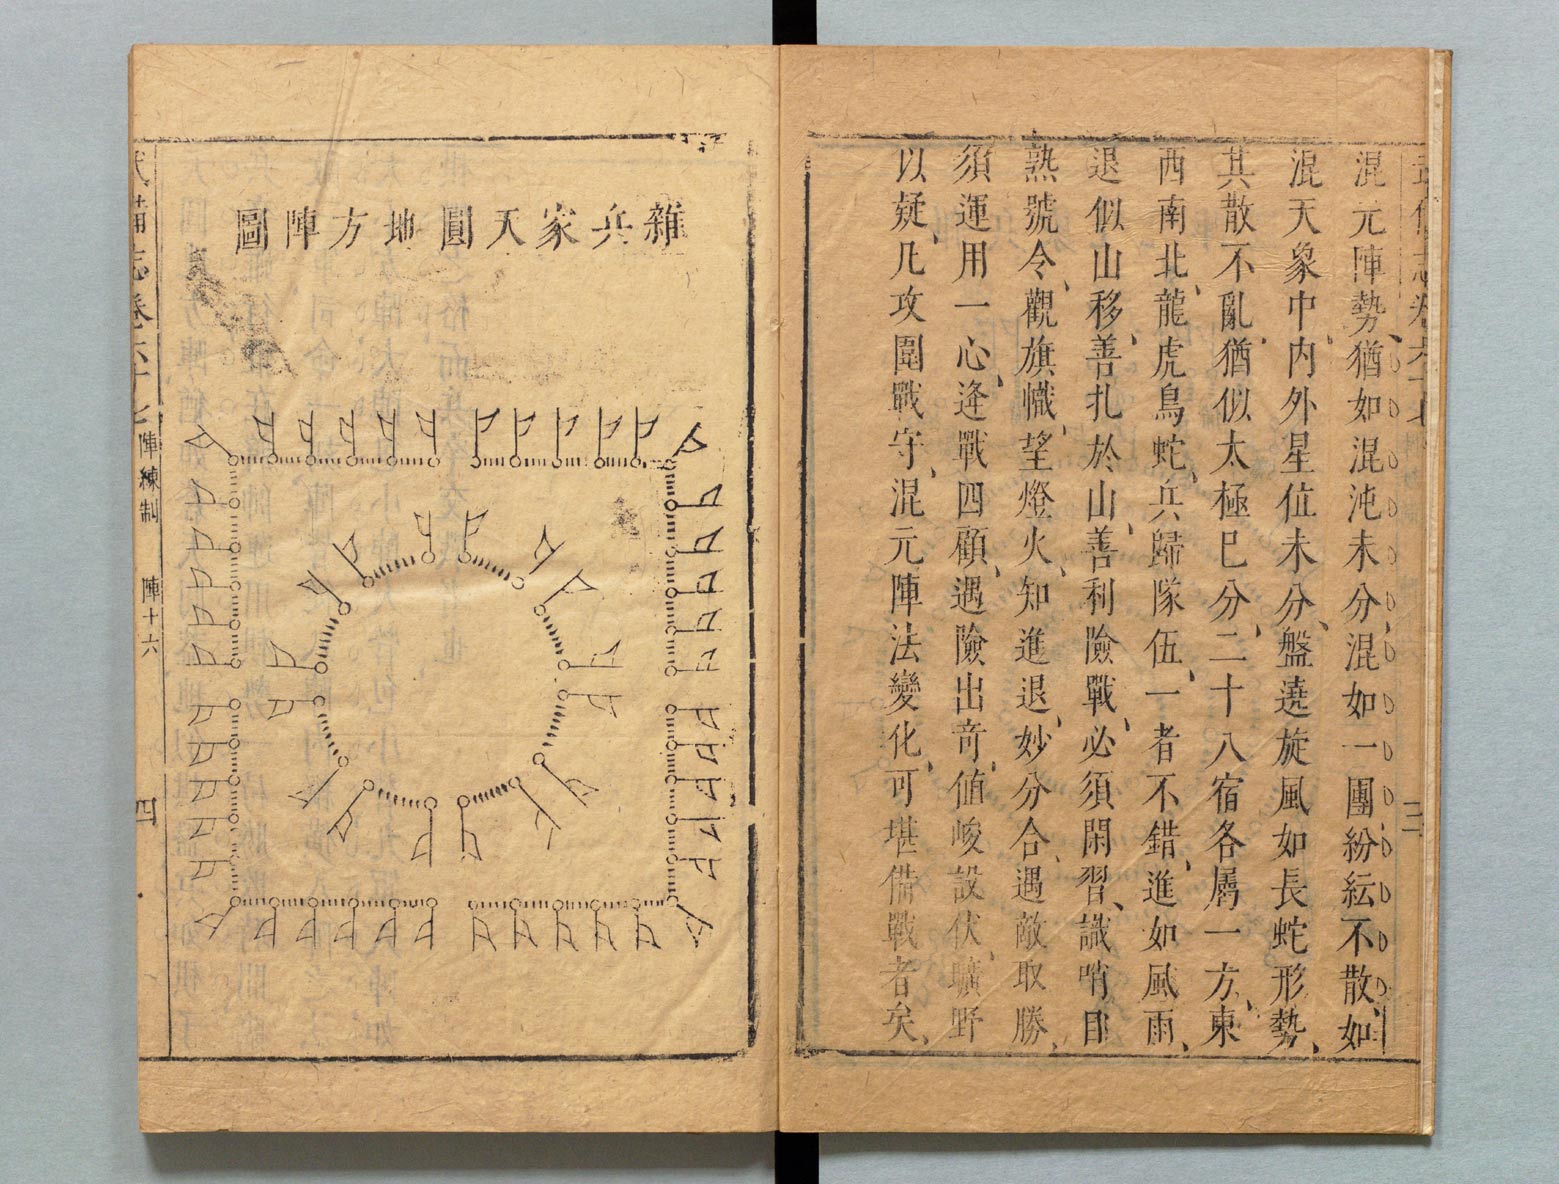 混元陣勢、猶如混沌未分、混如一團、紛紜不散、如
混天象中、内外星位未分、盤遶旋風如長蛇形勢、
其散不亂、猶似太極巳分、二十八宿各屬一方、東
西南北、龍虎鳥蛇、兵歸隊伍、一者不錯、進如風雨、
退似山移、善扎於山、善利險戰、必須閑習、識哨
熟號令、觀旗幟、望燈火、知進退、妙分合、遇敵取勝、
須運用一心、逢戰四顧、遇險出竒、値峻設伏、曠野
以疑、凡攻圍戰守、混元陣法變化、可堪備戰者矣、
雜兵家天圓地方陣圖
武備志卷六十七 陣練制 陣十六 四